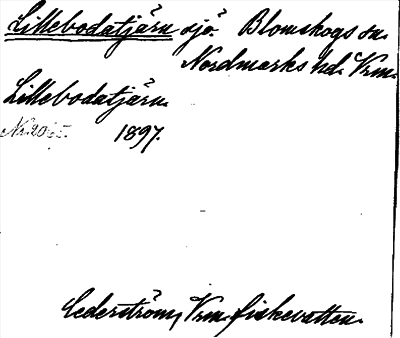 Lillebodatjärn sjö. Blomskogs sn.
Nordmarks hd. Vrm.
Lillebodatjärn
1897.
Cederström, Vrm. fiskevatten.